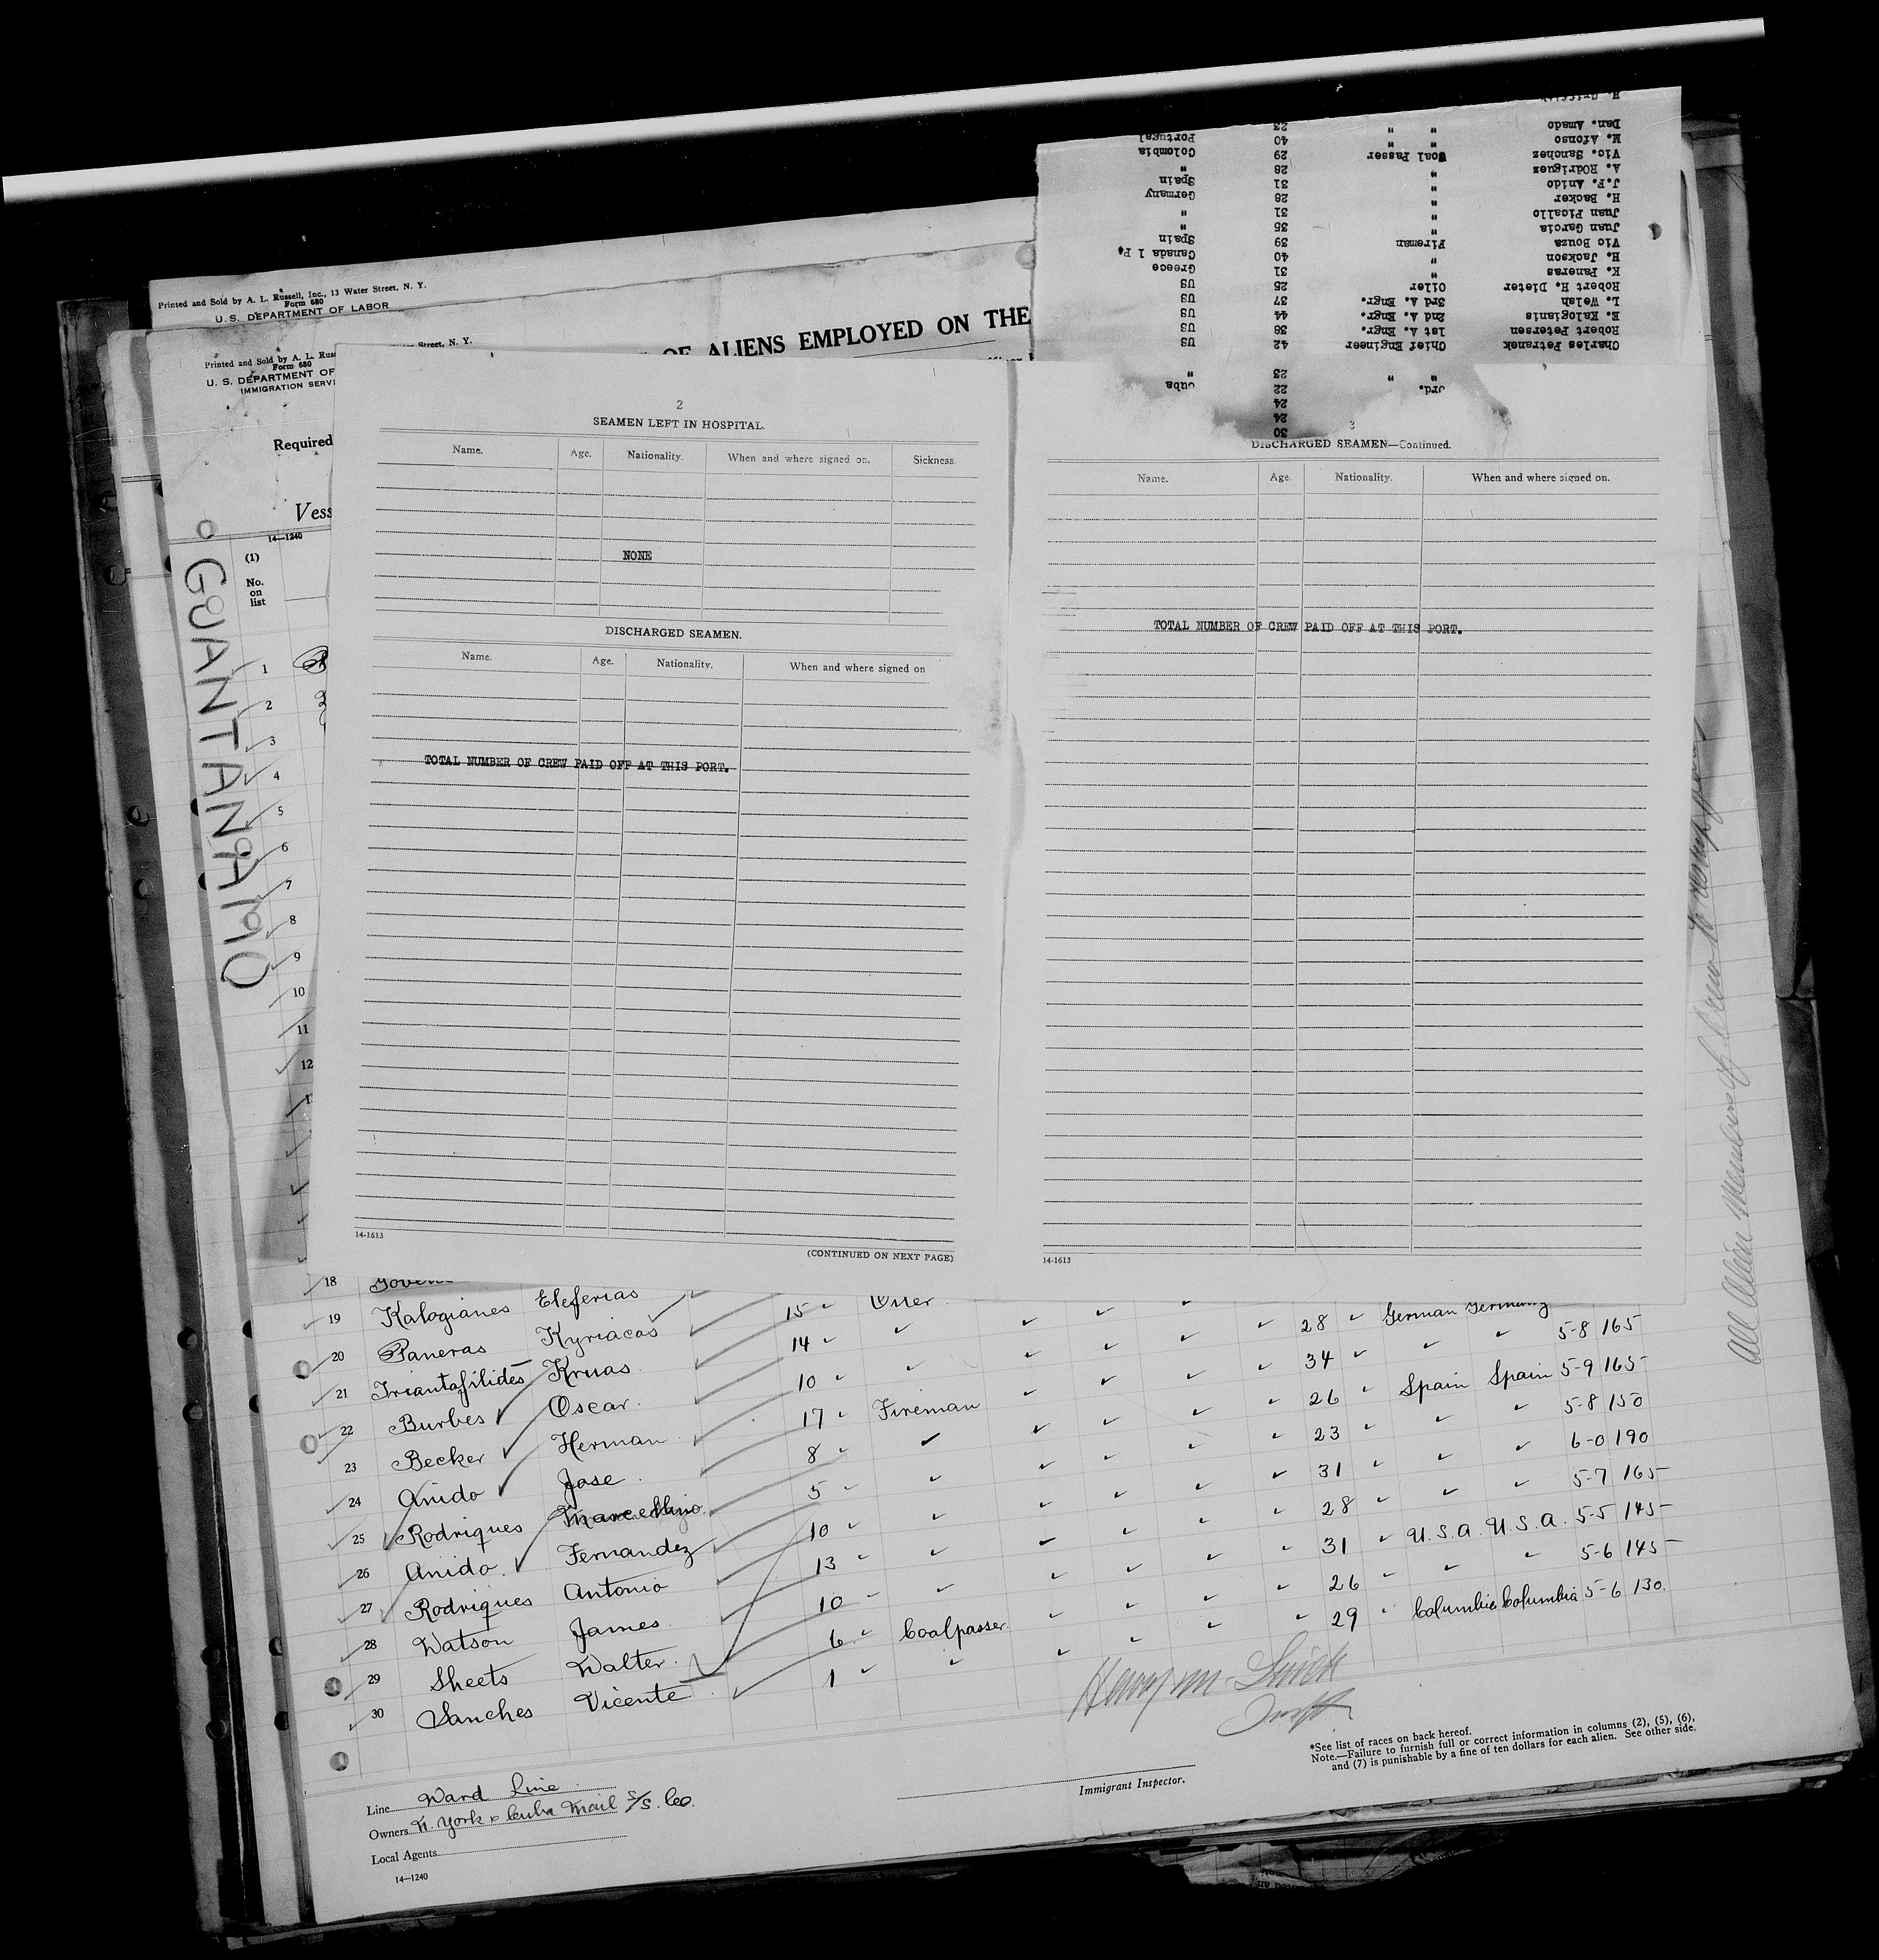 Printed and Sold by A. L. Russell, Inc., 13 Water Street, N. Y.
Form 680
U. S. DEPARTMENT OF LABOR
OF ALIENS EMPLOYED ON THE
Printed and Sold by A. L. Street, N. Y.
Form 680
U. S. DEPARTMENT OF
IMMIGRATION
Required
14—1240
(1)
No. on list
GUANTANAMO
1
2
3
4
5
6
7
8
9
10
11
12
Dan. Amado " " 23
M. Afonso " " 40 Portugal
Vic. Sanchez Coal Passer 29 Colombia
A. Rodriguez " 28 "
J.F. Anido " 31 Spain
H. Backer " 28 Germany
Juan Picallo " 31 "
Juan Garcia " 35 "
Vic Bouza Fireman 39 Spain
H. Jackson " 40 Canada 1 P.
K. Paneras " 31 Greece
Robert H. Dieter Oiler 25 US
L. Welsh 3rd A. Engr. 37 US
E. Kalogianis 2nd A. Engr. 44 US
Robert Petersen 1st A. Engr. 38 US
Charles Petranek Chief Engineer 42 US
" " 23 "
Ord. 22 Cuba
24
24
30
2
SEAMEN LEFT IN HOSPITAL.
Name. Age. Nationality. When and where signed on. Sickness.
NONE
DISCHARGED SEAMEN.
Name. Age. Nationality. When and where signed on
TOTAL NUMBER OF CREW PAID OFF AT THIS PORT.
14-1613
(CONTINUED ON NEXT PAGE)
3
DISCHARGED SEAMEN—Continued.
Name. Age. Nationality. When and where signed on.
TOTAL NUMBER OF CREW PAID OFF AT THIS PORT.
14-1613
All Alien Members of Crew to
18
19 Kalogianes Eleferias 15 Oiler 28 German Germany
20 Paneras Kyriacos 14 34 5-8 165
21 Triantafilides Kruas 10 26 Spain Spain 5-9 165
22 Burbes Oscar 17 Fireman 23 5-8 150
23 Becker Herman 8 31 6-0 190
24 Anido Jose 5 28 5-7 165
25 Rodriques Marcellino 10 31 U.S.A. U.S.A. 5-5 145
26 Anido Fernandez 13 26 5-6 145
27 Rodriques Antonio 10 29 Columbia Columbia 5-6 130
28 Watson James 6 Coalpasser
29 Sheets Walter 1
30 Sanches Vicente
Line Ward Line
Owners N. York & Cuba Mail S/S. Co.
Local Agents
14—1240
Immigrant Inspector.
*See list of races on back hereof.
Note.—Failure to furnish full or correct information in columns (2), (5), (6),
and (7) is punishable by a fine of ten dollars for each alien. See other side.